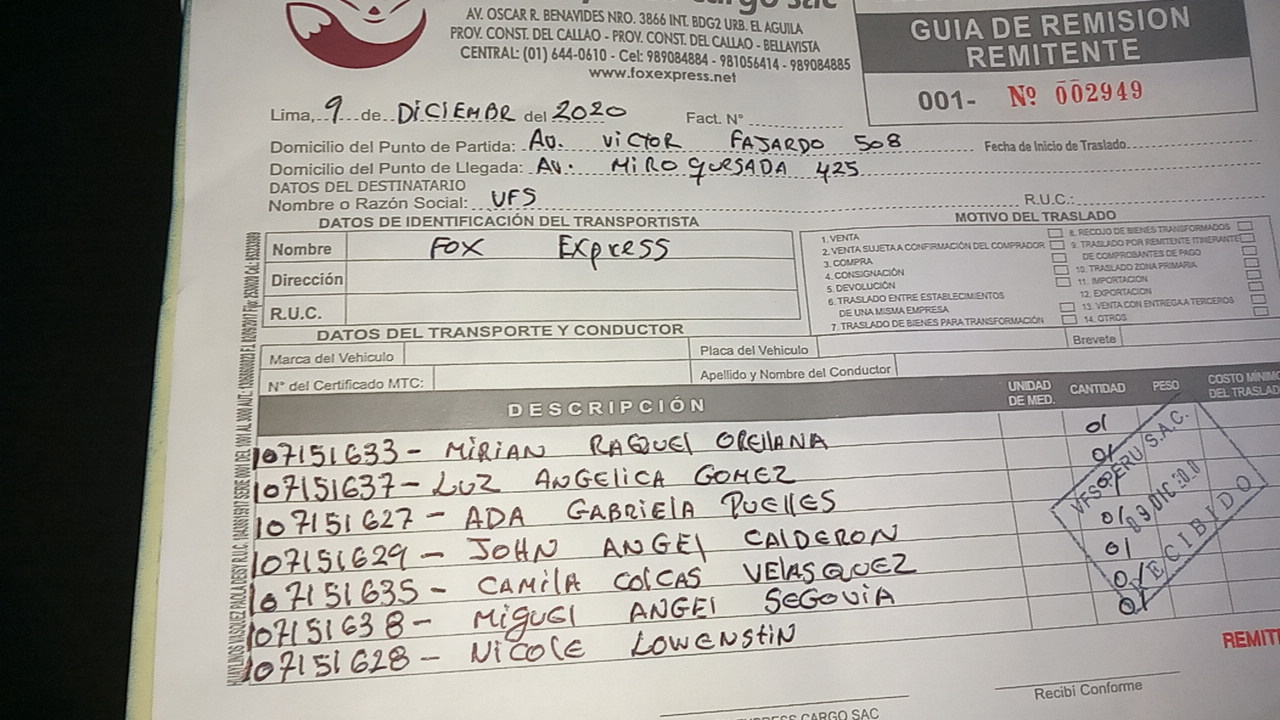 Cargo sac
AV. OSCAR R. BENAVIDES NRO. 3866 INT. BDG2 URB. EL AGUILA
PROV. CONST. DEL CALLAO - PROV. CONST. DEL CALLAO - BELLAVISTA
CENTRAL: (01) 644-0610 - Cel: 989084884 - 981056414 - 989084885
www.foxexpress.net
GUIA DE REMISION
REMITENTE
001- Nº 002949
Lima, 9 de DICIEMBR del 2020 Fact. N°
Domicilio del Punto de Partida: AV. VICTOR FAJARDO 508 Fecha de Inicio de Traslado
Domicilio del Punto de Llegada: AV. MIRO QUESADA 425
DATOS DEL DESTINATARIO
Nombre o Razón Social: VFS R.U.C.:
DATOS DE IDENTIFICACIÓN DEL TRANSPORTISTA
Nombre FOX Express
Dirección
R.U.C.
MOTIVO DEL TRASLADO
1. VENTA
2. VENTA SUJETA A CONFIRMACIÓN DEL COMPRADOR
3. COMPRA
4. CONSIGNACIÓN
5. DEVOLUCIÓN
6. TRASLADO ENTRE ESTABLECIMIENTOS
DE UNA MISMA EMPRESA
7. TRASLADO DE BIENES PARA TRANSFORMACIÓN
8. RECOJO DE BIENES TRANSFORMADOS
9. TRASLADO POR REMITENTE ITINERANTE
DE COMPROBANTES DE PAGO
10. TRASLADO ZONA PRIMARIA
11. IMPORTACIÓN
12. EXPORTACIÓN
13. VENTA CON ENTREGA A TERCEROS
14. OTROS
DATOS DEL TRANSPORTE Y CONDUCTOR
Marca del Vehiculo Placa del Vehiculo Brevete
N° del Certificado MTC: Apellido y Nombre del Conductor
DESCRIPCIÓN UNIDAD DE MED. CANTIDAD PESO COSTO MÍNIMO DEL TRASLADO
107151633 - MIRIAN RAQUEL ORELLANA 01
107151637 - LUZ ANGELICA GOMEZ 01
107151627 - ADA GABRIELA PUELLES 01
107151629 - JOHN ANGEL CALDERON 01
107151635 - CAMILA COLCAS VELASQUEZ 01
107151638 - MIGUEL ANGEL SEGOVIA 01
107151628 - NICOLE LOWENSTIN 01
VFS PERU S.A.C.
09 DIC 2020
RECIBIDO
REMIT
EXPRESS CARGO SAC
Recibí Conforme